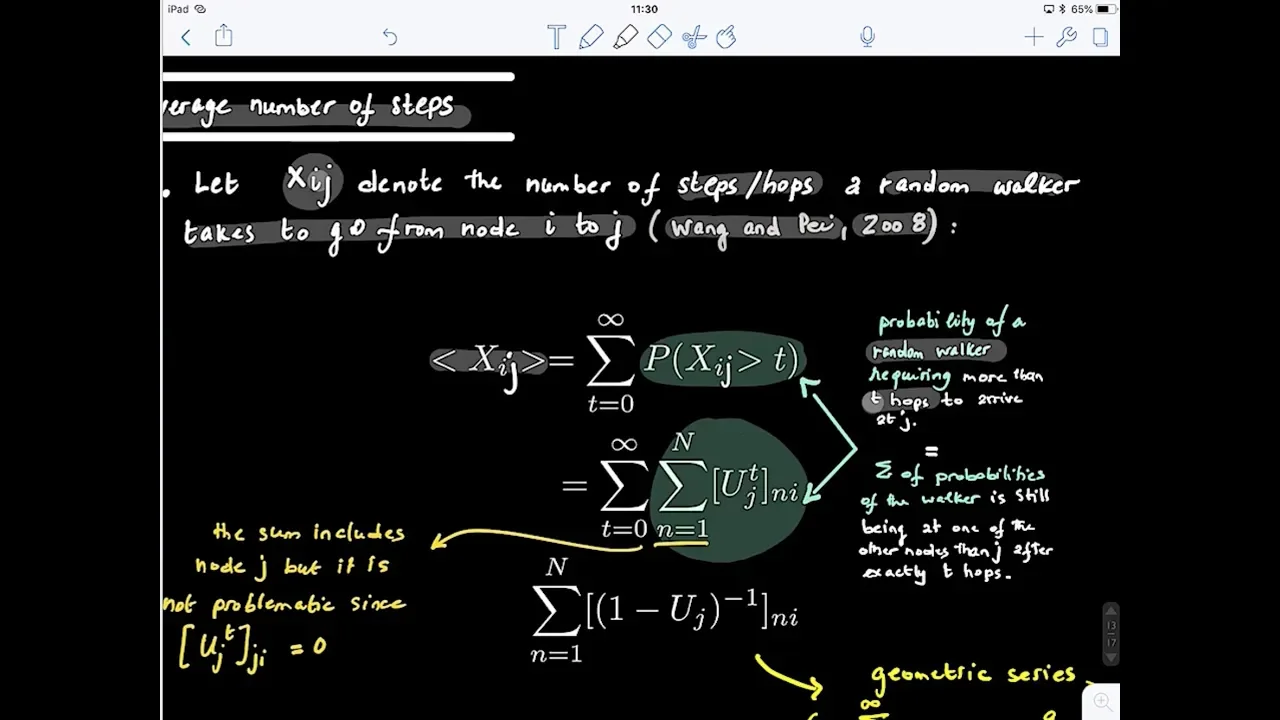 iPad
11:30
65%
verage number of steps
. Let Xij denote the number of steps/hops a random walker
takes to go from node i to j (Wang and Pei, 2008) :
< X_{ij} > = \sum_{t=0}^{\infty} P(X_{ij} > t)
probability of a
random walker
requiring more than
t hops to arrive
at j.
=
= \sum_{t=0}^{\infty} \sum_{n=1}^{N} [U_j^t]_{ni}
Σ of probabilities
of the walker is still
being at one of the
other nodes than j after
exactly t hops.
the sum includes
node j but it is
not problematic since
[U_j^t]_{ji} = 0
\sum_{n=1}^{N} [(1 − U_j)^{−1}]_{ni}
13
17
geometric series